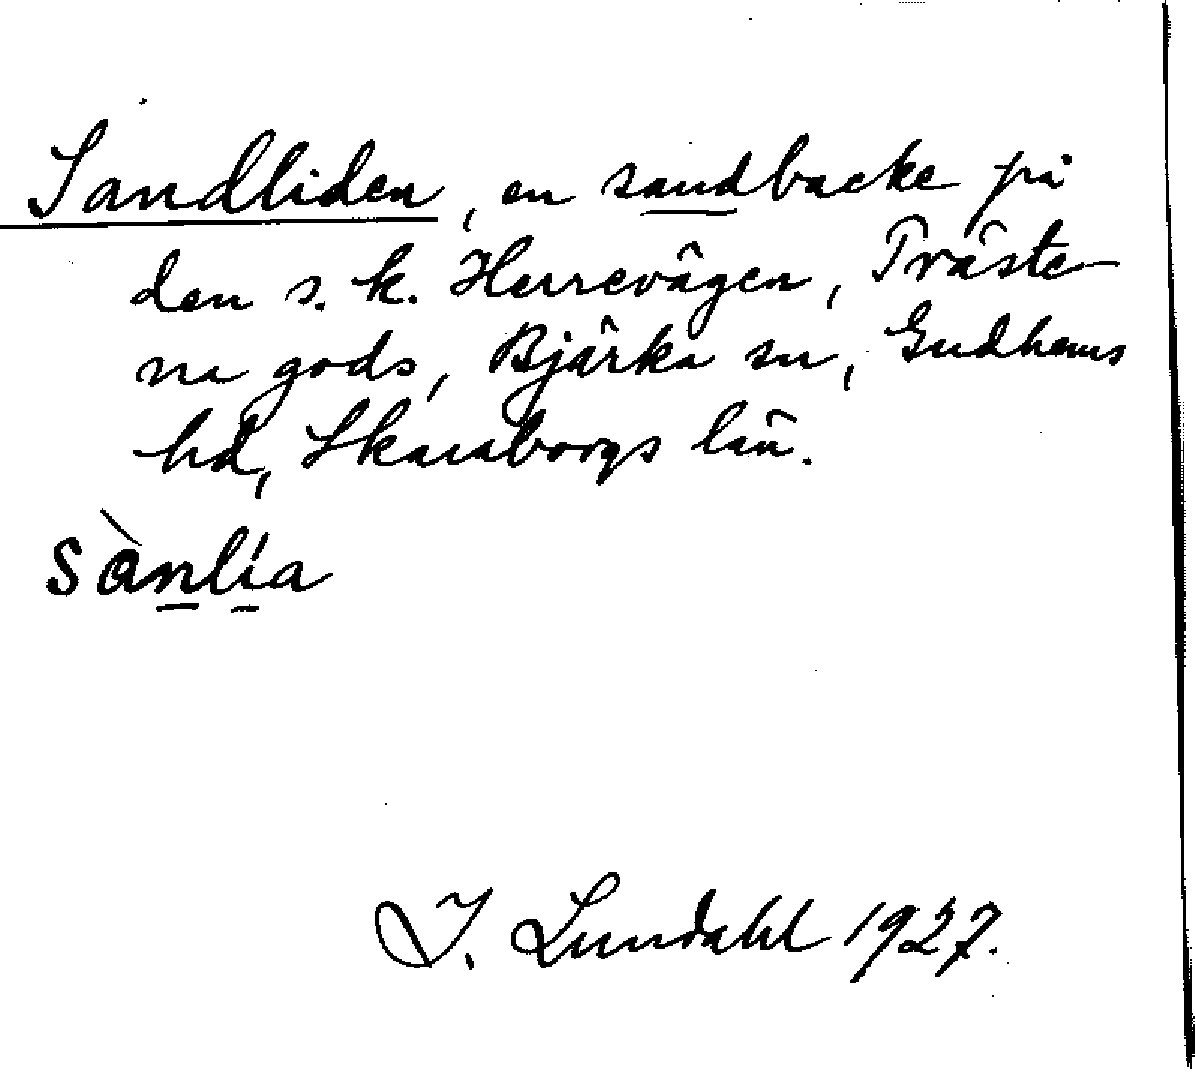 Sandliden, en sandbacke på
den s. k. Herrevägen, Präste-
na gods, Bjärka sn, Gudhems
hd, Skaraborgs län.
sànlía
I. Lundahl 1927.